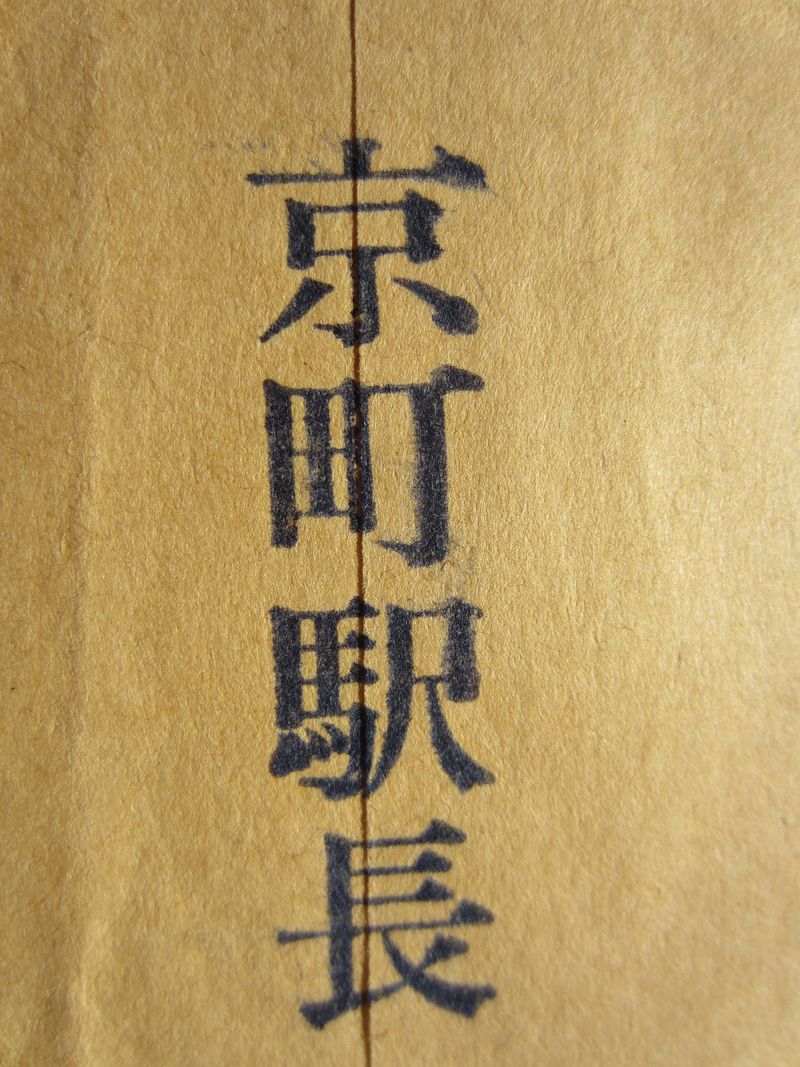 京町駅長